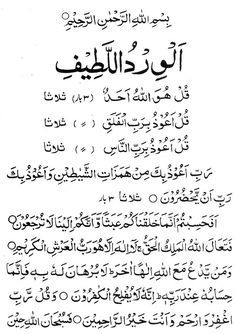 بِسْمِ اللهِ الرَّحْمٰنِ الرَّحِيْمِ ○
اَلْوِرْدُ اللَّطِيْف
قُلْ هُوَ اللهُ اَحَدٌ (۳ بار) ثلاثا
قُلْ اَعُوْذُ بِرَبِّ الْفَلَقِ (〃) ثلاثا
قُلْ اَعُوْذُ بِرَبِّ النَّاسِ (〃) ثلاثا
رَبِّ اَعُوْذُ بِكَ مِنْ هَمَزَاتِ الشَّيٰطِيْنِ وَاَعُوْذُ بِكَ
رَبِّ اَنْ يَّحْضُرُوْنِ ○ ثلاثا ۳ بار
اَفَحَسِبْتُمْ اَنَّمَا خَلَقْنٰكُمْ عَبَثًا وَّاَنَّكُمْ اِلَيْنَا لَا تُرْجَعُوْنَ ○
فَتَعَالَى اللهُ الْمَلِكُ الْحَقُّ لَا اِلٰهَ اِلَّا هُوَ رَبُّ الْعَرْشِ الْكَرِيْمِ ○
وَمَنْ يَّدْعُ مَعَ اللهِ اِلٰهًا اٰخَرَ لَا بُرْهَانَ لَهٗ بِهٖ فَاِنَّمَا
حِسَابُهٗ عِنْدَ رَبِّهٖ اِنَّهٗ لَا يُفْلِحُ الْكٰفِرُوْنَ ○ وَقُلْ رَّبِّ
اغْفِرْ وَارْحَمْ وَاَنْتَ خَيْرُ الرّٰحِمِيْنَ ○ فَسُبْحَانَ اللهِ حِيْنَ